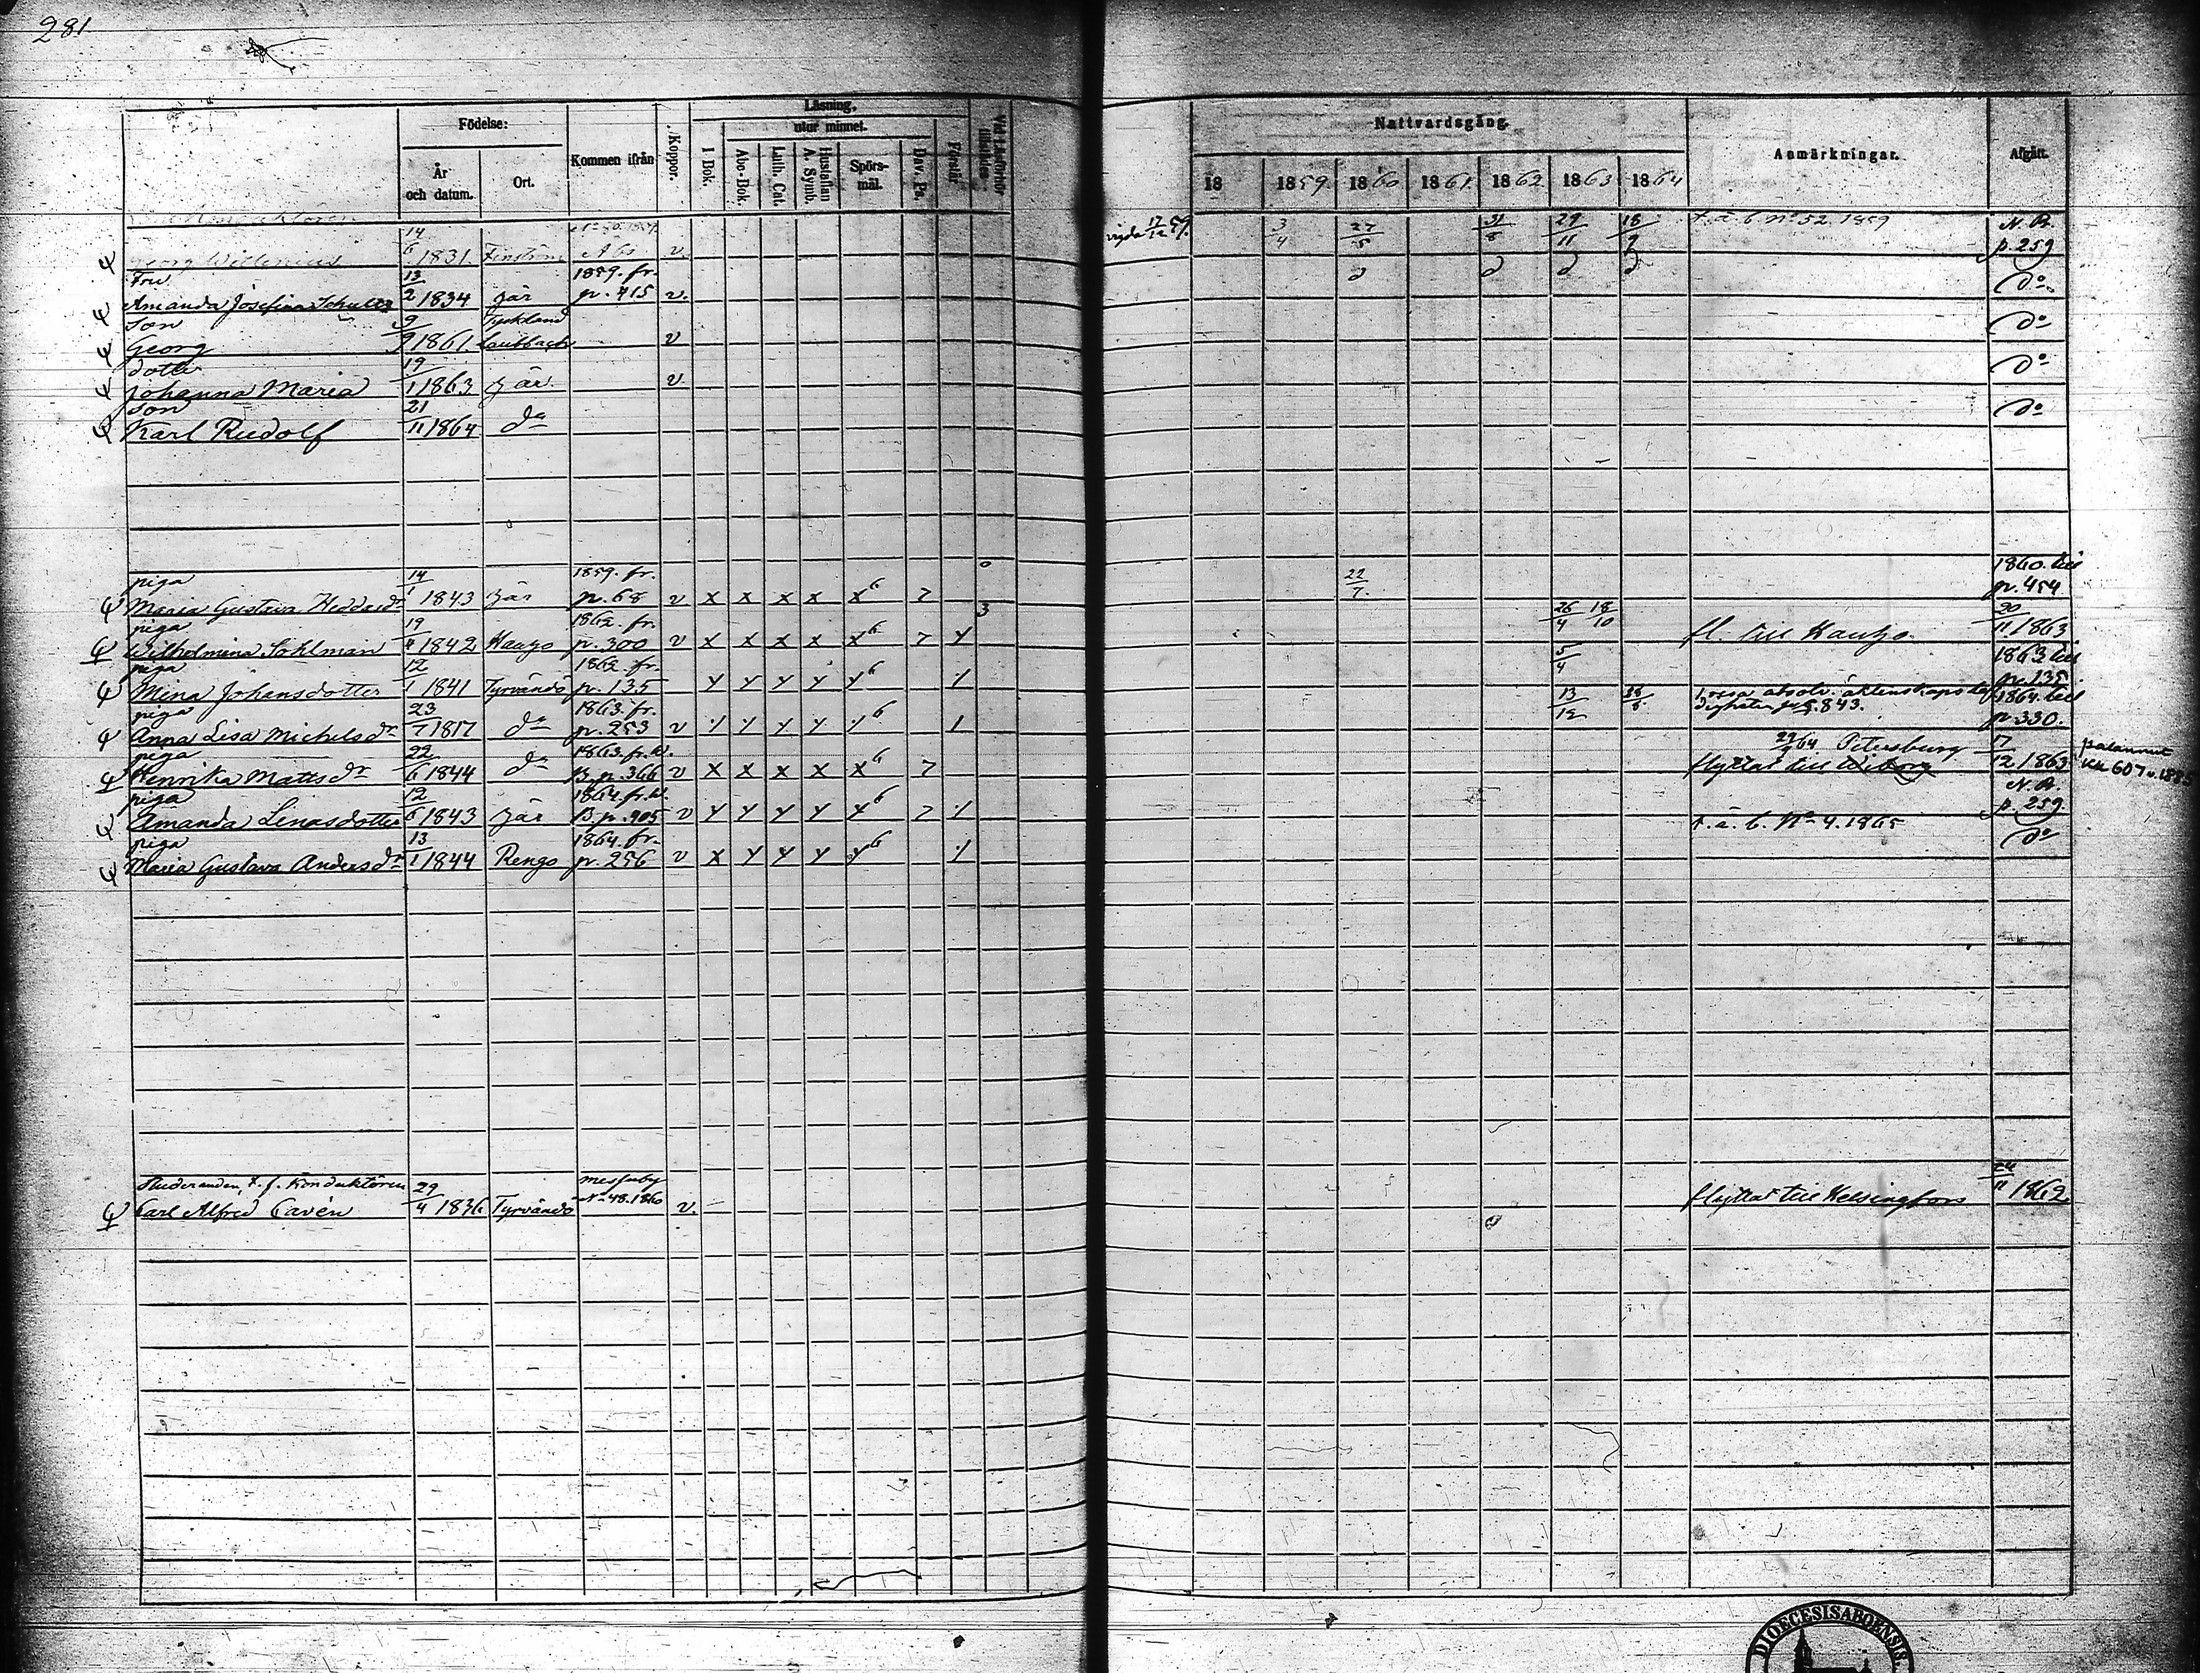 281
Födelse:
År och datum.
Ort.
Kommen ifrån
Koppor.
Läsning,
utur minnet.
I Bok.
Abc-Bok.
Luth. Cat.
Hustaflan A. Symb.
Spörs- mål.
Dav. Ps.
Förstår
Nattvardsgång.
18 1859. 1860 1861. 1862. 1863 1864
Anmärkningar.
Afgått.
14/6 1831. Finström Åbo v. vigda 17/12 59. 3/4 27/5 31/8 29/11 18/9 N. B. p. 259
Georg Willenius
Fru
Amanda Josefina Schultz 13/2 1834 Här 1859. fr. p. 415 v. do
Son
Georg 9/9 1861. Tyskland v do
dotter
Johanna Maria 19/1 1863 Här v do
Son
Karl Rudolf 21/11 1864 do do
piga
Maria Gustava Heddasdr 14/1 1843 Här 1859. fr. p. 68 v x x x x x 6 7 22/7. 1860. till p. 454
piga
Wilhelmina Sohlman 19 1842 Hauho 1862. fr. p. 300 v x x x x x 6 7 3 26/4 18/10 fl. till Hauho. 20/11 1863
piga
Mina Johansdotter 12/1 1841 Tyrvändö 1862. fr. p. 135 5/4 1863 till p. 135.
piga
Anna Lisa Michelsdr 23 1817 do 1863. fr. p. 253 v 13/12 absolv. 843. 1864. till p. 330.
piga
Henrika Mattsdr 22/6 1844 do 1863. fr. W. B. p. 366 v x x x x x 6 7 29/9 64 Petersburg
flyttat till Wiborg 17/12 1863 palannut KK 607 v. 1885
piga
Amanda Linasdotter 12/6 1843 Här 1864. fr. W. B. p. 905 v 6 7 N. B. p. 259.
piga
Maria Gustava Andersdr 13/1 1844 Rengo 1864. fr. p. 256 v x 6 f. ä. b. No 4. 1865 do
Studeranden, t. f. Konduktören
Carl Alfred Cavén 29/4 1836 Tyrvändö Messuby No 48. 1860 v. flyttat till Helsingfors 24/11 1862
DIOECESIS ABOENSIS